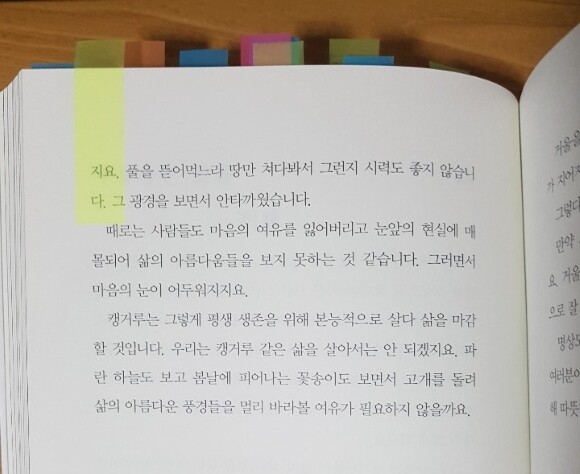 지요. 풀을 뜯어먹느라 땅만 쳐다봐서 그런지 시력도 좋지 않습니
다. 그 광경을 보면서 안타까웠습니다.
때로는 사람들도 마음의 여유를 잃어버리고 눈앞의 현실에 매
몰되어 삶의 아름다움들을 보지 못하는 것 같습니다. 그러면서
마음의 눈이 어두워지지요.
캥거루는 그렇게 평생 생존을 위해 본능적으로 살다 삶을 마감
할 것입니다. 우리는 캥거루 같은 삶을 살아서는 안 되겠지요. 파
란 하늘도 보고 봄날에 피어나는 꽃송이도 보면서 고개를 돌려
삶의 아름다운 풍경들을 멀리 바라볼 여유가 필요하지 않을까요.
거울을
가 지어지
그렇다
만약
요. 거울
으로 잘
명상도
여러분이
해 따뜻